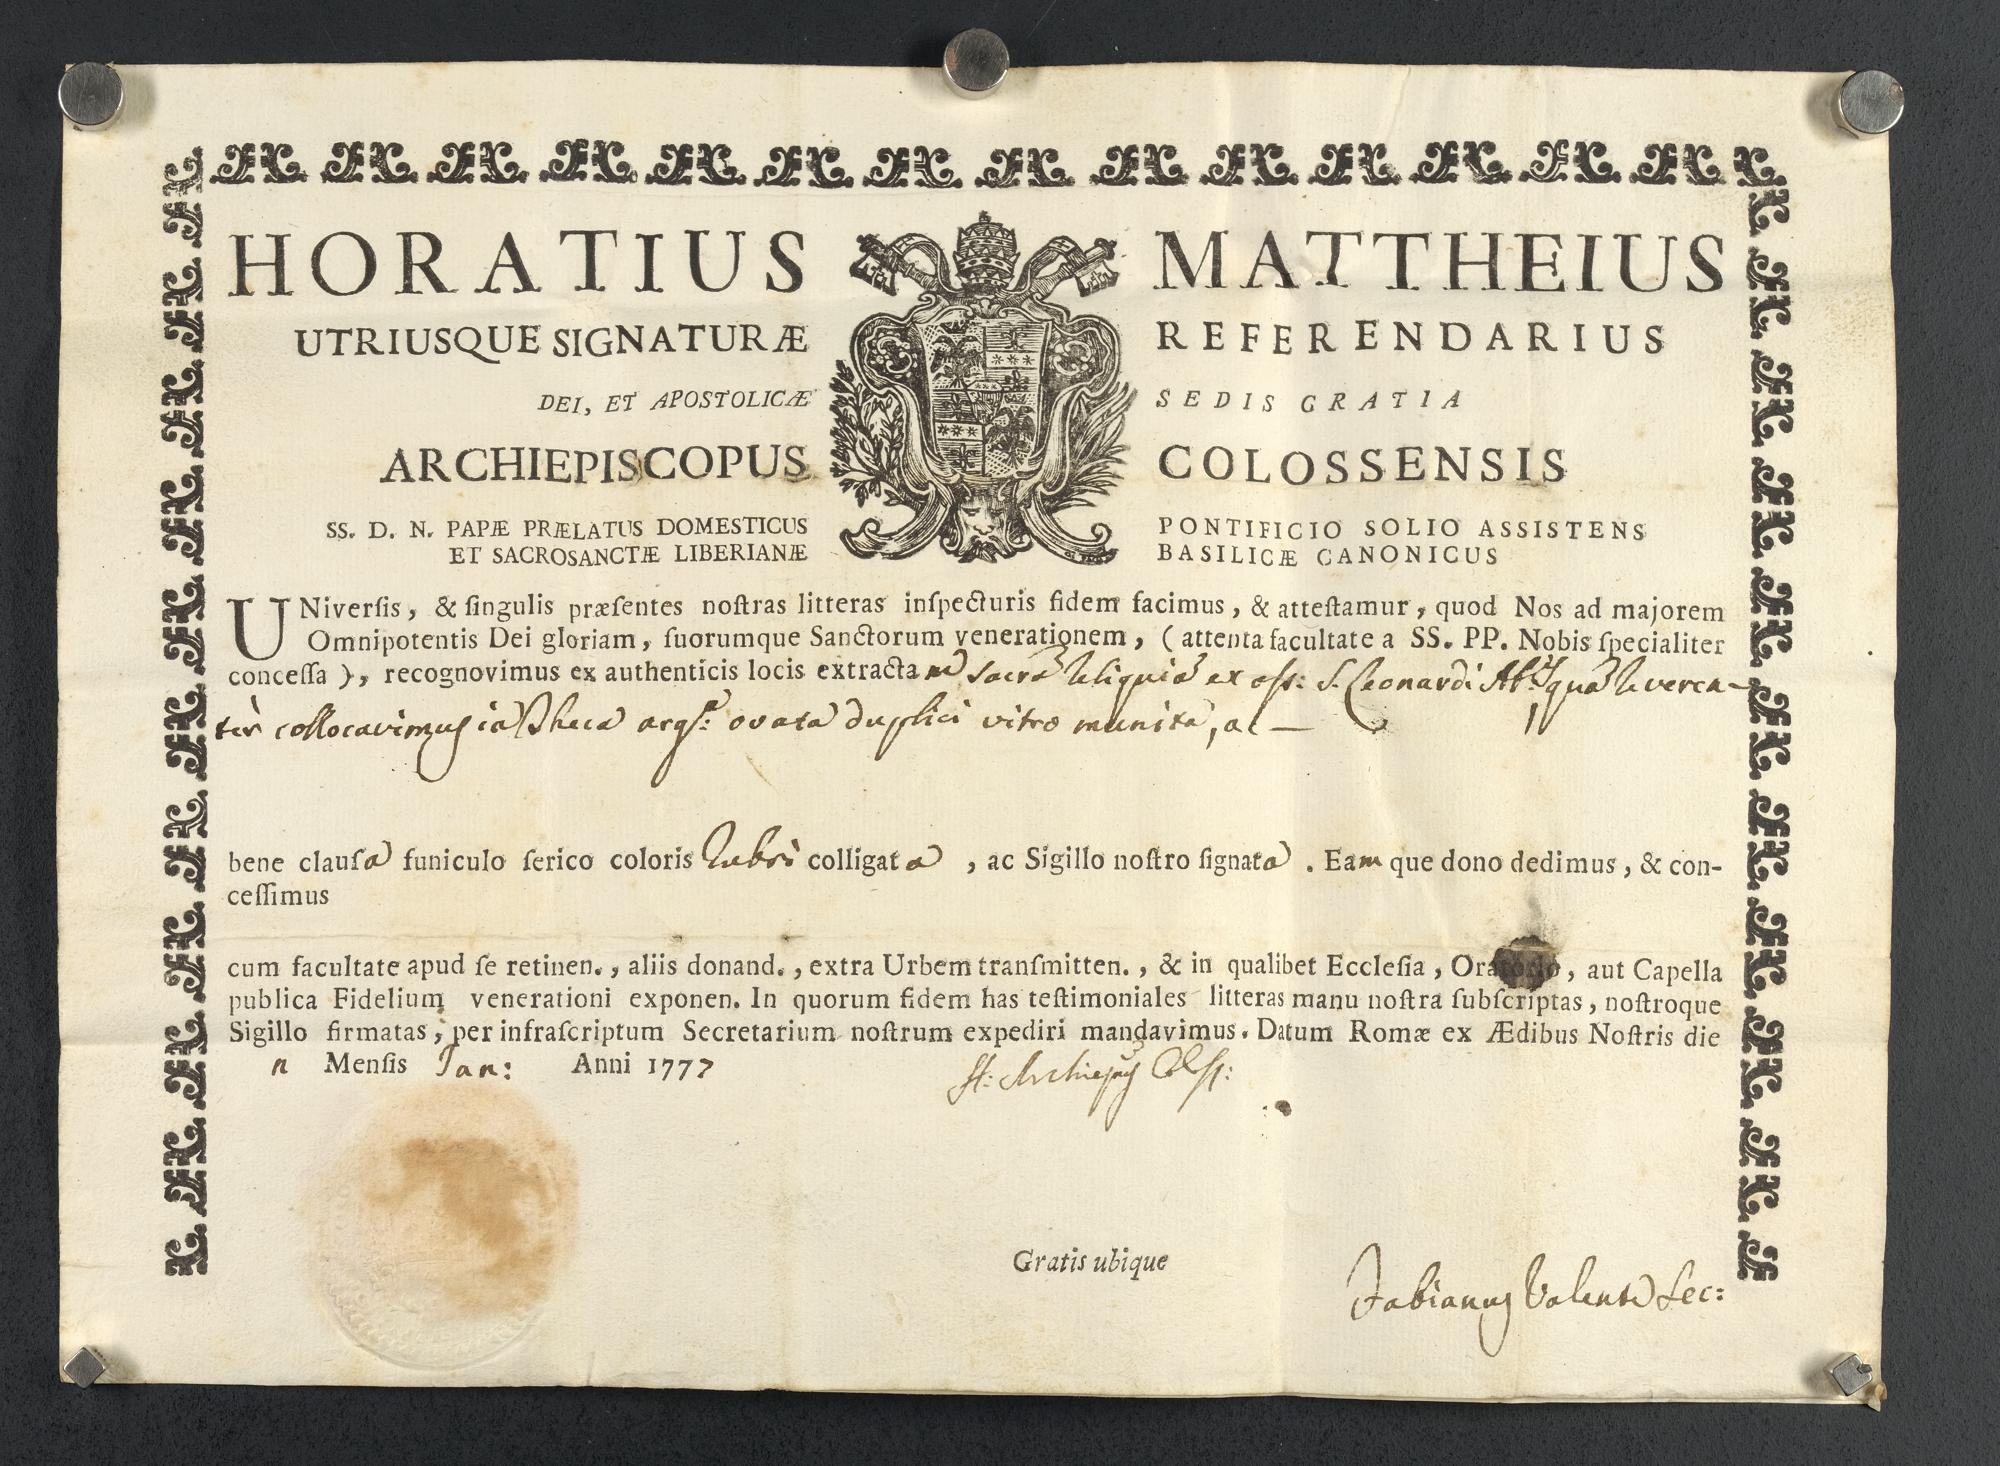 HORATIUS MATTHEIUS
UTRIUSQUE SIGNATURÆ REFERENDARIUS
DEI, ET APOSTOLICÆ SEDIS GRATIA
ARCHIEPISCOPUS COLOSSENSIS
SS. D. N. PAPÆ PRÆLATUS DOMESTICUS PONTIFICIO SOLIO ASSISTENS
ET SACROSANCTÆ LIBERIANÆ BASILICÆ CANONICUS
UNiverſis, & ſingulis præſentes noſtras litteras inſpecturis fidem facimus, & atteſtamur, quod Nos ad majorem
Omnipotentis Dei gloriam, ſuorumque Sanctorum venerationem, (attenta facultate a SS. PP. Nobis ſpecialiter
conceſſa), recognovimus ex authenticis locis extractam sacrã Reliquiã ex oss: S. Leonardi Ab:, quã Reveren-
ter collocavimus in Theca arg: ovata duplici vitro munita, ac —
bene clauſa funiculo ſerico coloris Rubri colligata, ac Sigillo noſtro ſignata. Eamque dono dedimus, & con-
ceſſimus
cum facultate apud ſe retinen., aliis donand., extra Urbem tranſmitten., & in qualibet Eccleſia, Oratorio, aut Capella
publica Fidelium venerationi exponen. In quorum fidem has teſtimoniales litteras manu noſtra ſubſcriptas, noſtroque
Sigillo firmatas, per infraſcriptum Secretarium noſtrum expediri mandavimus. Datum Romæ ex Ædibus Noſtris die
Menſis Jan: Anni 1777 H: Archiepus Coloss:
Gratis ubique
Fabianus Valenti Sec: